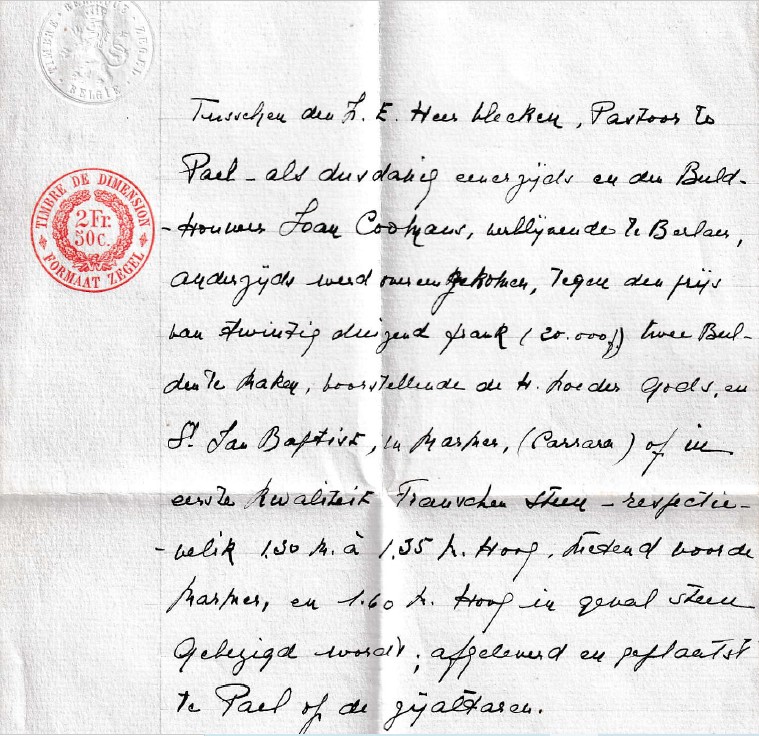 TIMBRE BELGIQUE ZEGEL
BELGIË
TIMBRE DE DIMENSION
2 Fr.
50 c.
FORMAAT ZEGEL
Tusschen den Z. E. Heer Vlecken, Pastoor te
Pael - als dusdanig eenerzijds en den Beeld-
-houwer Joan Coomans, verblijvende te Berlaer,
anderzijds werd overeengekomen, tegen den prijs
van twintig duizend frank (20.000 f) twee Beel-
den te maken, voorstellende de H. Moeder Gods, en
St Jan Baptist, in marmer, (Carrara) of in
eerste kwaliteit Franschen steen - respectie-
-velik 1.30 M. à 1.35 M. hoog, metend voor de
Marmer, en 1.60 M. hoog in geval steen
Gebezigd wordt; afgeleverd en geplaatst
te Pael op de zijaltaren.